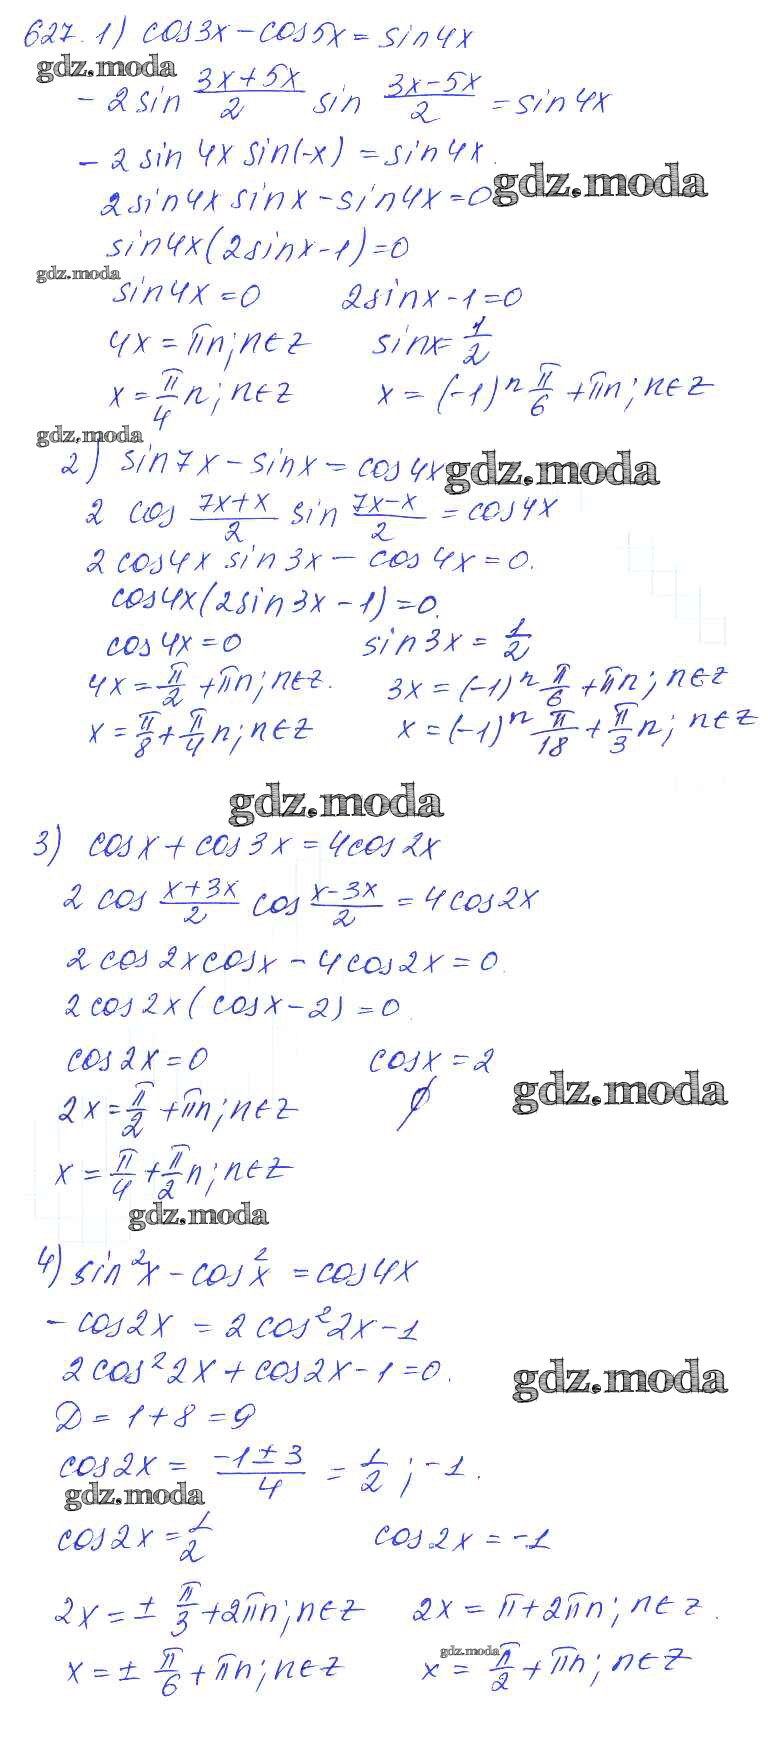 627. 1) cos3x - cos5x = sin4x
gdz.moda
-2 sin (3x+5x)/2 sin (3x-5x)/2 = sin4x
-2 sin 4x sin(-x) = sin4x.
gdz.moda
2sin4x sinx - sin4x = 0
sin4x(2sinx-1)=0
gdz.moda
sin4x = 0 2sinx-1=0
4x = πn; n∈Z sinx = 1/2
x = π/4 n; n∈Z x = (-1)ⁿ π/6 + πn; n∈Z
gdz.moda
2) sin7x - sinx = cos4x
gdz.moda
2 cos (7x+x)/2 sin (7x-x)/2 = cos4x
2cos4x sin3x - cos4x = 0.
cos4x(2sin3x - 1) = 0.
cos4x = 0 sin3x = 1/2
4x = π/2 + πn; n∈Z. 3x = (-1)ⁿ π/6 + πn; n∈Z
x = π/8 + π/4 n; n∈Z x = (-1)ⁿ π/18 + π/3 n; n∈Z
gdz.moda
3) cosx + cos3x = 4cos2x
2 cos (x+3x)/2 cos (x-3x)/2 = 4cos2x
2cos2xcosx - 4cos2x = 0.
2cos2x(cosx-2) = 0.
cos2x = 0 cosx = 2
gdz.moda
2x = π/2 + πn; n∈Z ∅
x = π/4 + π/2 n; n∈Z
gdz.moda
4) sin²x - cos²x = cos4x
-cos2x = 2cos²2x-1
2cos²2x + cos2x - 1 = 0.
gdz.moda
D = 1+8 = 9
cos2x = (-1±3)/4 = 1/2; -1.
gdz.moda
cos2x = 1/2 cos2x = -1
2x = ± π/3 + 2πn; n∈Z 2x = π+2πn; n∈Z.
gdz.moda
x = ± π/6 + πn; n∈Z x = π/2 + πn; n∈Z